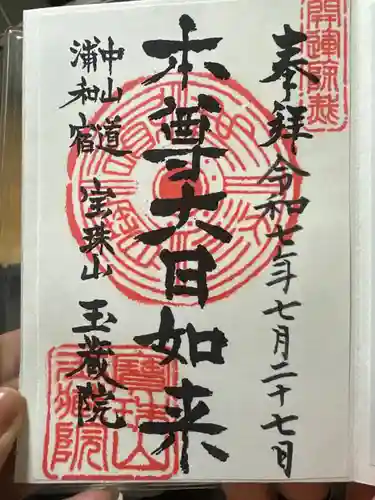 奉拝 令和七年七月二十七日
本尊大日如来
中山道
浦和宿
宝珠山 玉蔵院